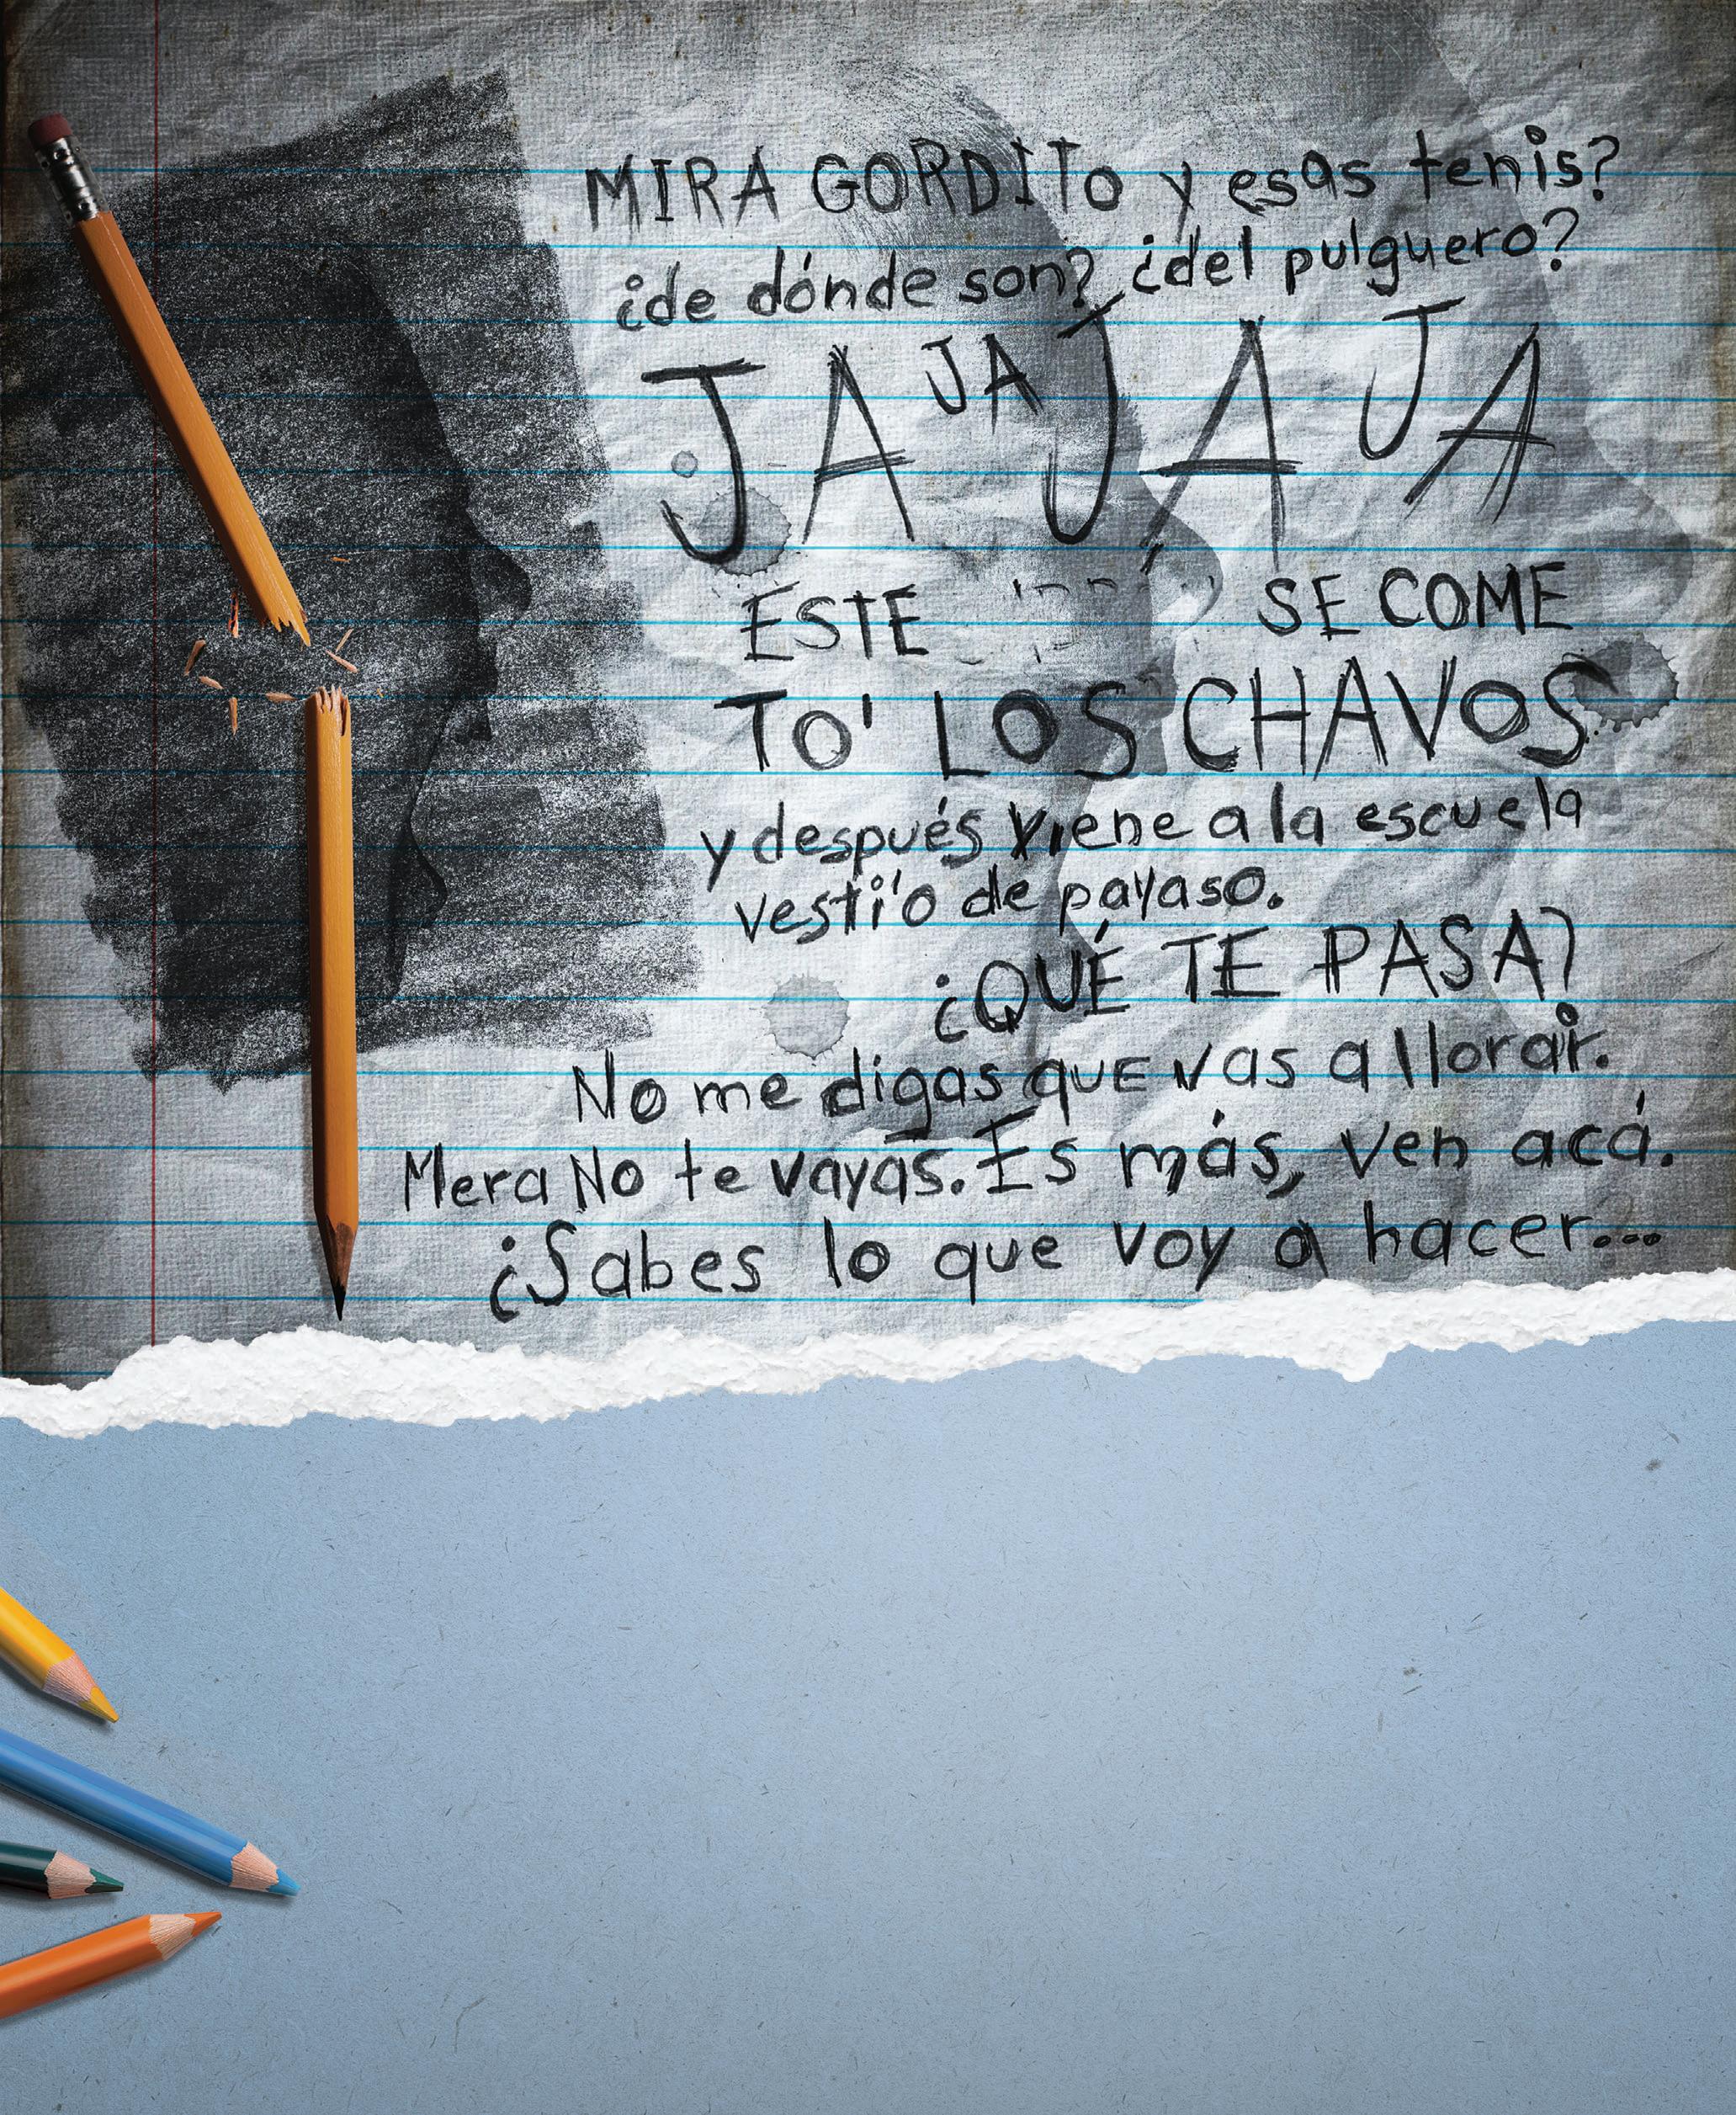 MIRA GORDITO y esas tenis?
¿de dónde son? ¿del pulguero?
JA JA JA JA
ESTE SE COME
TO' LOS CHAVOS
y después viene a la escuela
vestí'o de payaso.
¿QUÉ TE PASA?
No me digas QUE vas a llorar.
Mera No te vayas. Es más, ven acá.
¿Sabes lo que voy a hacer...